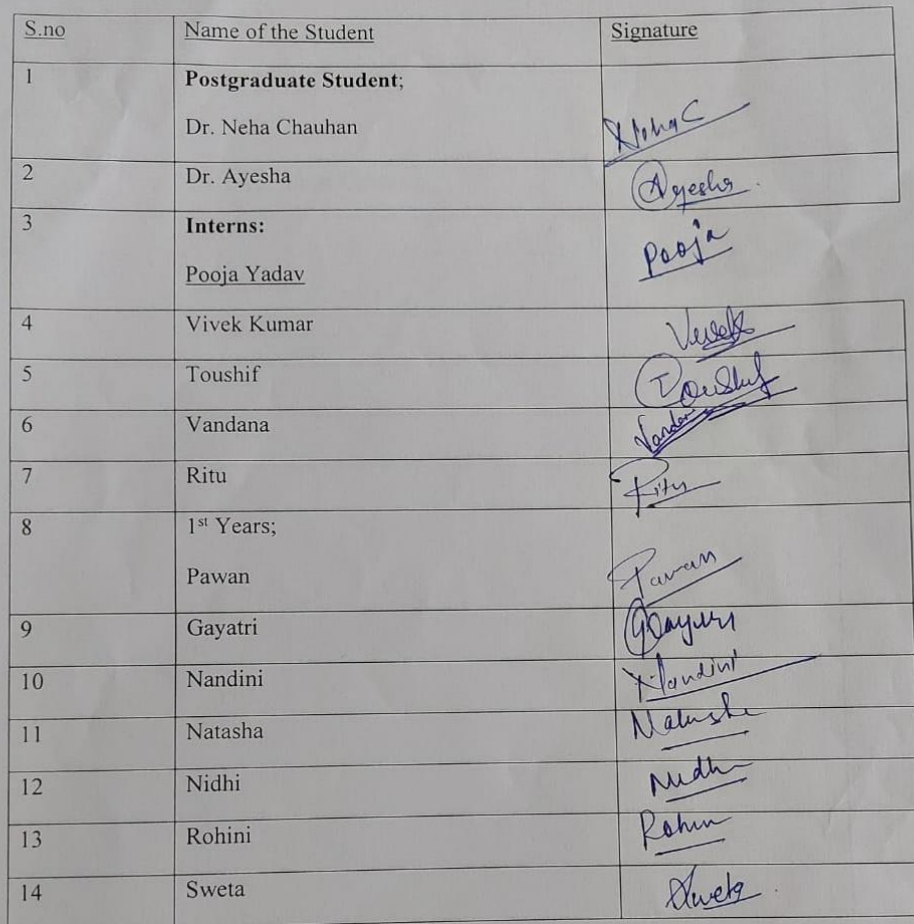 S.no Name of the Student Signature
1 Postgraduate Student;
Dr. Neha Chauhan NehaC
2 Dr. Ayesha Ayesha
3 Interns:
Pooja Yadav Pooja
4 Vivek Kumar Vivek
5 Toushif Toushif
6 Vandana
7 Ritu Ritu
8 1st Years;
Pawan Pawan
9 Gayatri
10 Nandini Nandini
11 Natasha
12 Nidhi Nidhi
13 Rohini
14 Sweta Sweta